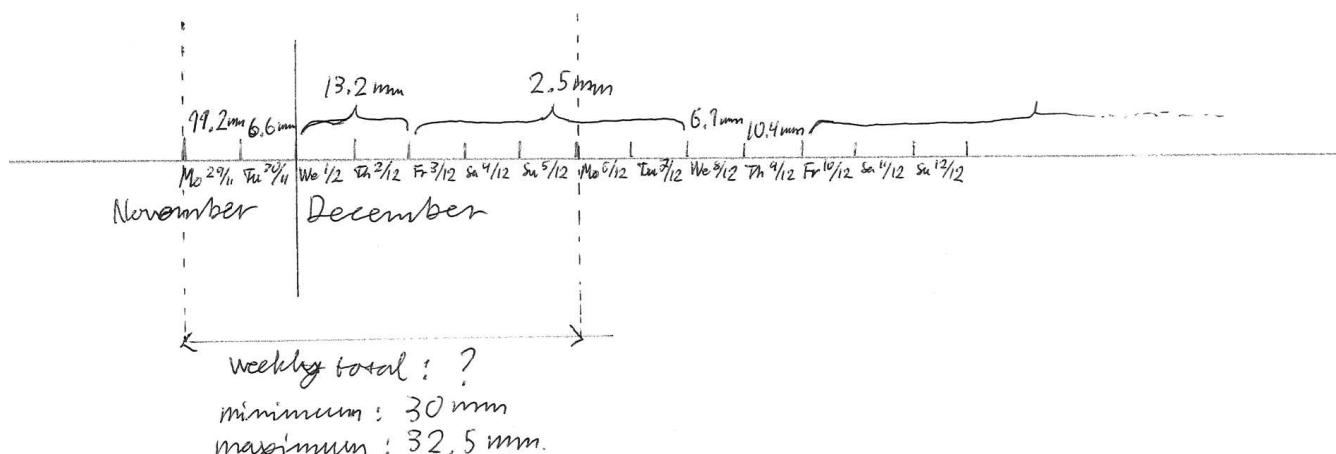 13.2 mm 2.5mm
11.2mm 6.6mm 6.1mm 10.4mm
Mo 29/11 Tu 30/11 We 1/2 Th 2/12 Fr 3/12 Sa 4/12 Su 5/12 Mo 6/12 Tu 7/12 We 8/12 Th 9/12 Fr 10/12 Sa 11/12 Su 12/12
November December
weekly total : ?
minimum : 30 mm
maximum : 32,5 mm.